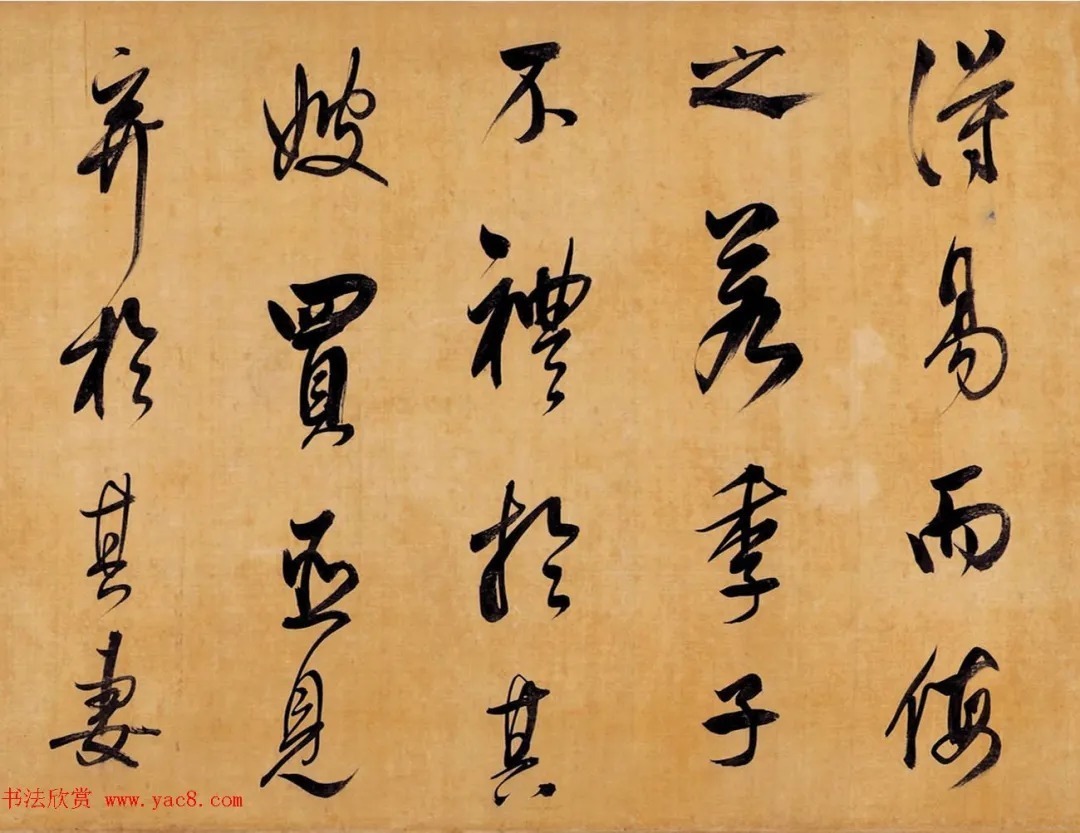 得易而侮
之若季子
不禮於其
嫂買臣見
棄於其妻
书法欣赏 www.yac8.com